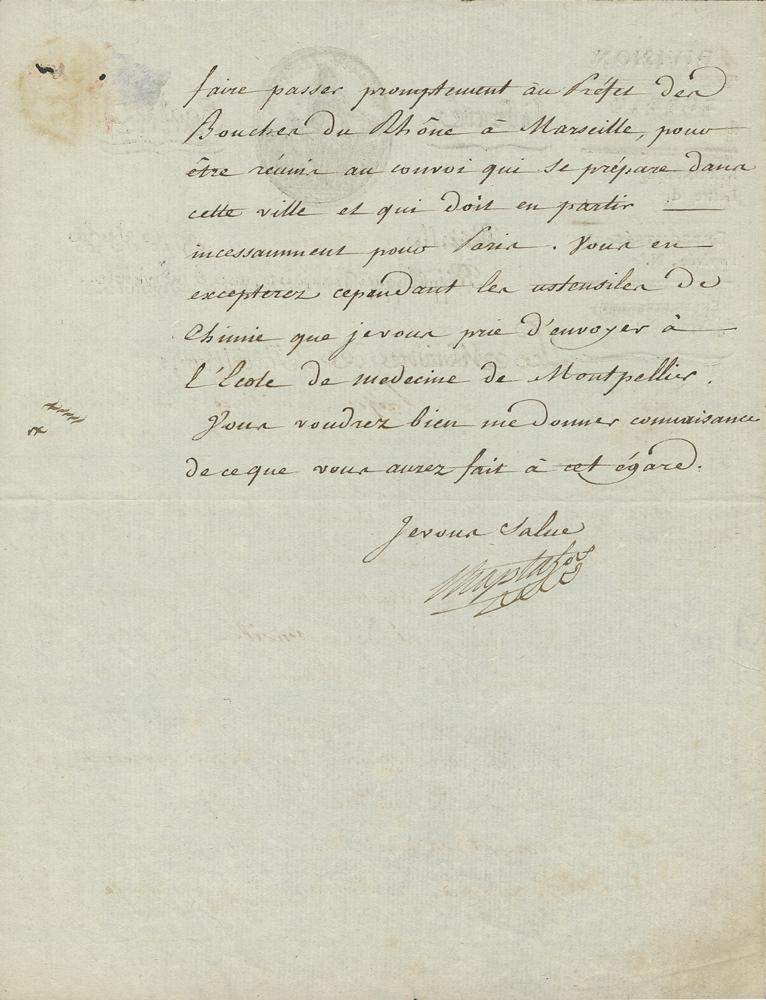 faire passer promptement au Préfet des
Bouches du Rhône à Marseille, pour
être réunis au convoi qui se prépare dans
cette ville et qui doit en partir
incessamment pour Paris. Vous en
excepterez cependant les ustensiles de
Chimie que je vous prie d'envoyer à
l'École de medecine de Montpellier.
Vous voudrez bien me donner connaisance
de ce que vous aurez fait à cet égard.
Je vous Salue
Chaptal